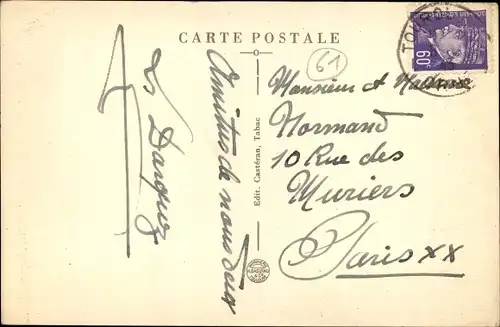 CARTE POSTALE
61
60
Amitiés de nous deux
Edit. Castéran, Tabac
Monsieur et Madame
Normand
10 Rue des
Muriers
Paris XX